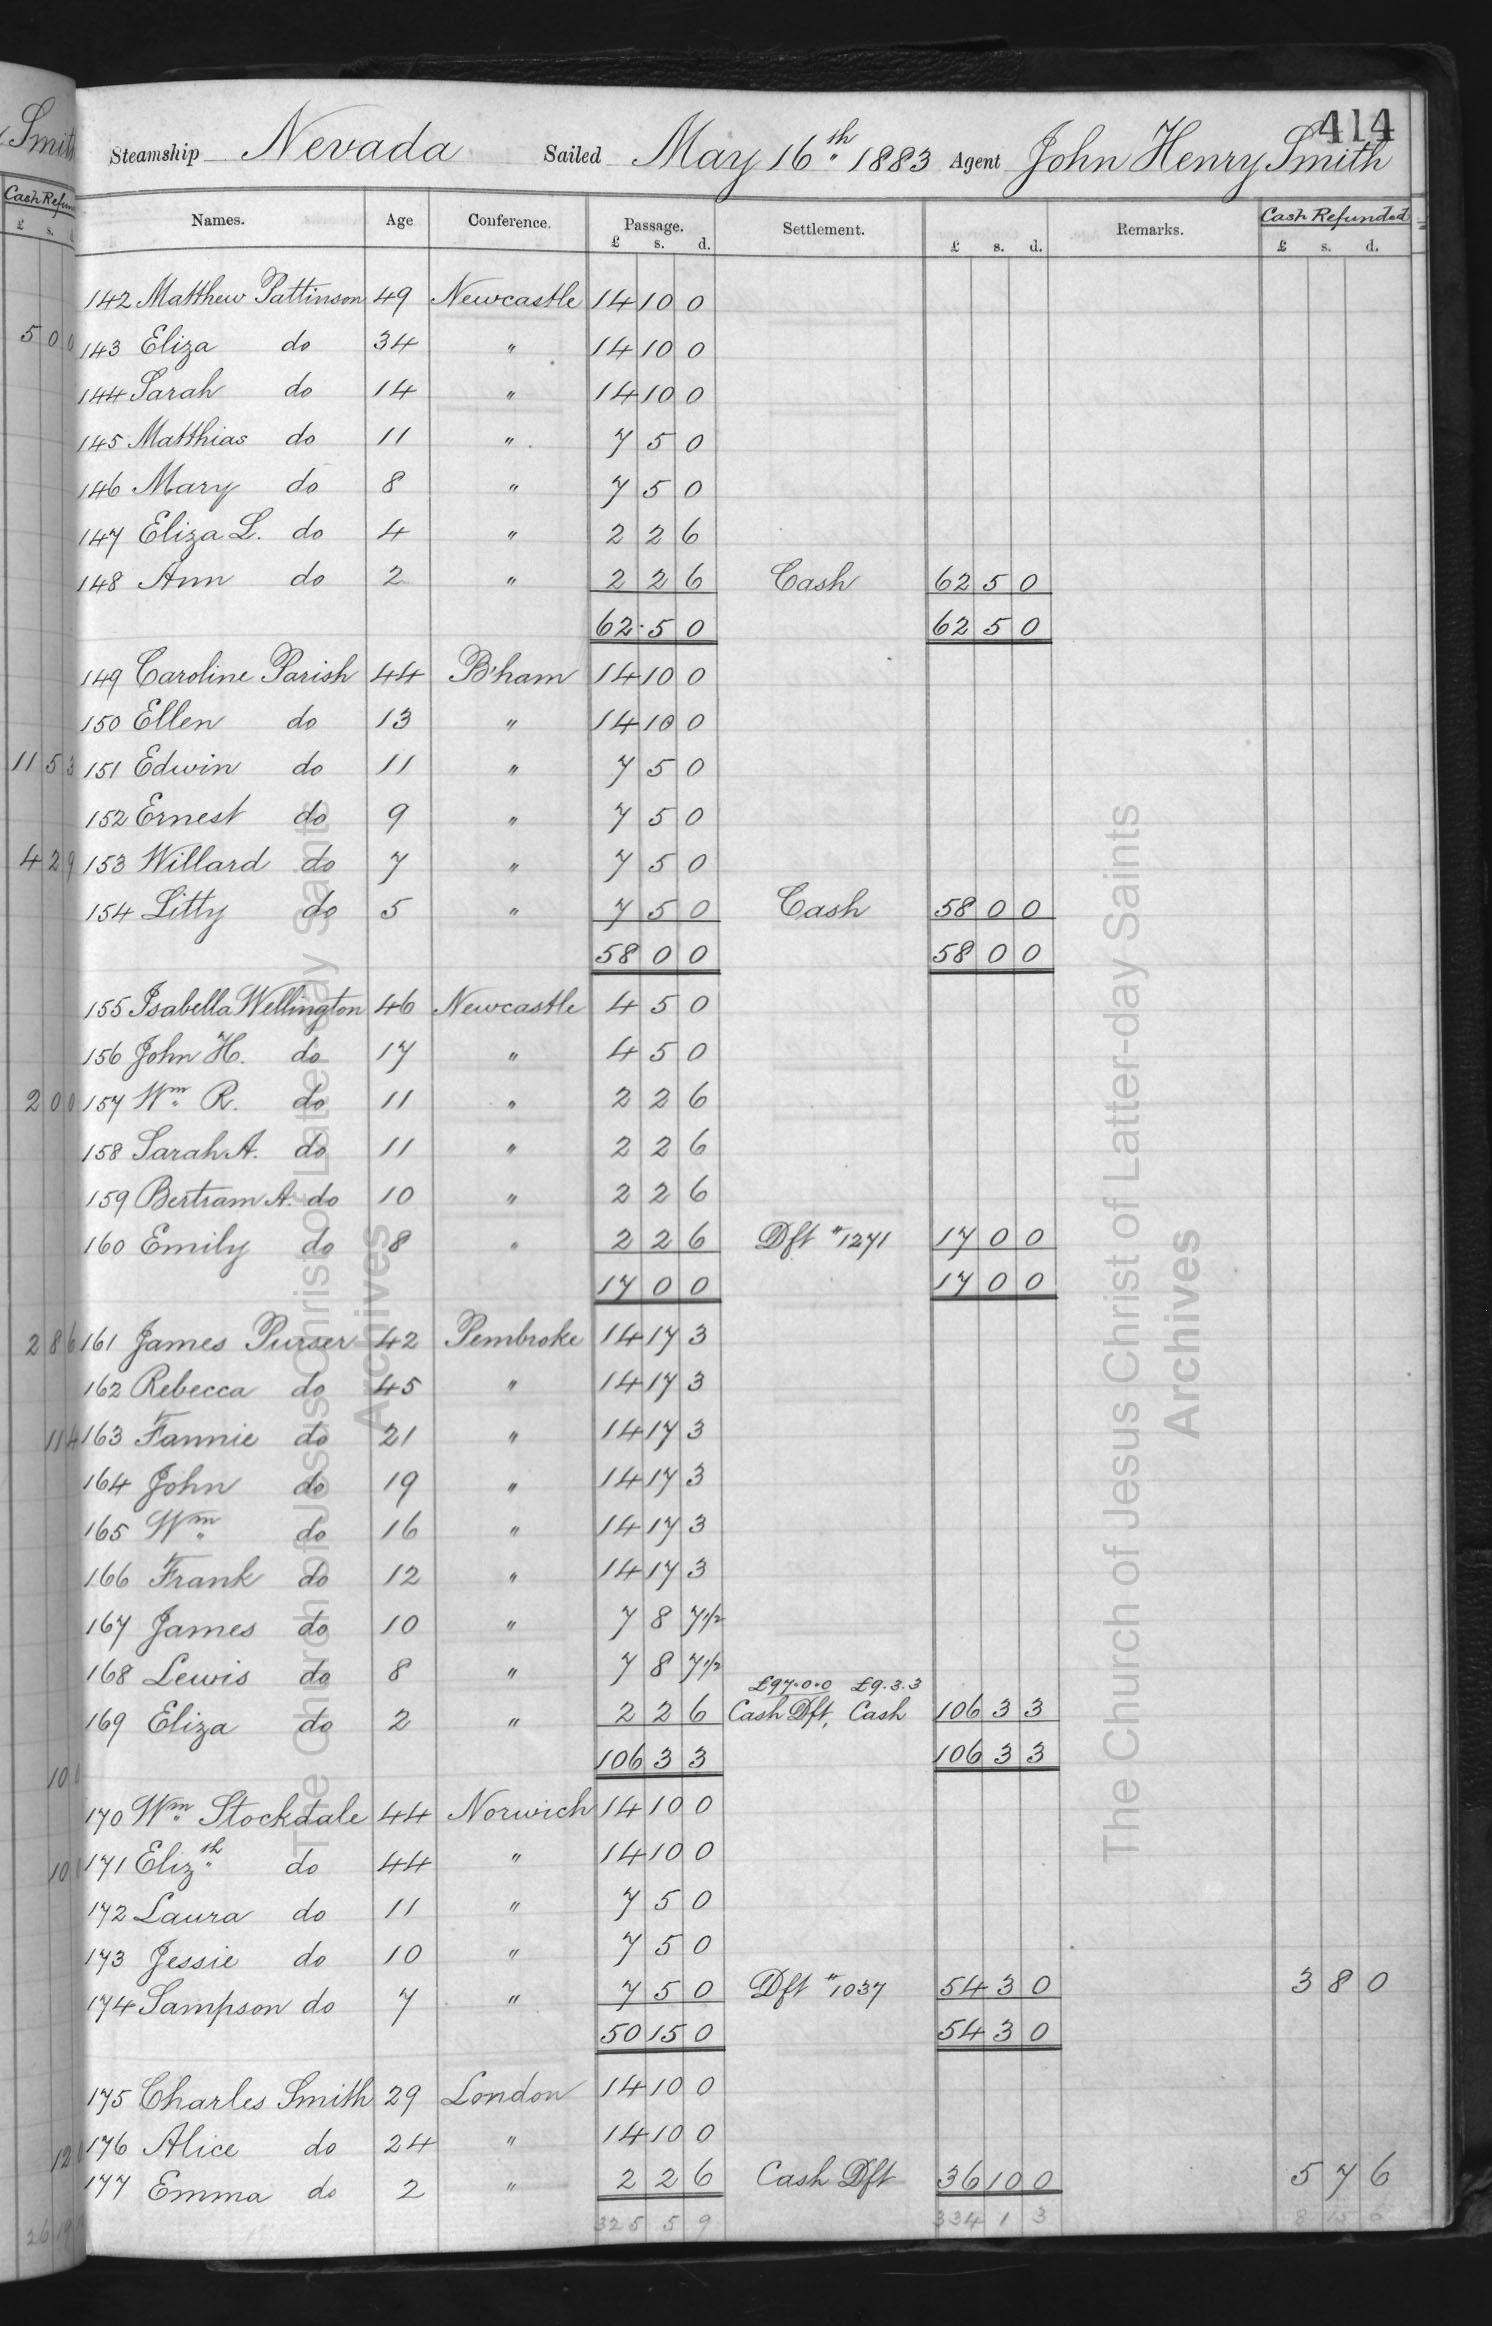 414
Steamship Nevada Sailed May 16th 1883 Agent John Henry Smith
Names. Age Conference. Passage. Settlement. Remarks. Cash Refunded
£ s. d. £ s. d. £ s. d.
142 Matthew Pattinson 49 Newcastle 14 10 0
143 Eliza do 34 " 14 10 0
144 Sarah do 14 " 14 10 0
145 Matthias do 11 " 7 5 0
146 Mary do 8 " 7 5 0
147 Eliza L. do 4 " 2 2 6
148 Ann do 2 " 2 2 6 Cash 62 5 0
62 5 0 62 5 0
149 Caroline Parish 44 B'ham 14 10 0
150 Ellen do 13 " 14 10 0
151 Edwin do 11 " 7 5 0
152 Ernest do 9 " 7 5 0
153 Willard do 7 " 7 5 0
154 Litty do 5 " 7 5 0 Cash 58 0 0
58 0 0 58 0 0
155 Isabella Wellington 46 Newcastle 4 5 0
156 John H. do 17 " 4 5 0
157 Wm R. do 11 " 2 2 6
158 Sarah A. do 11 " 2 2 6
159 Bertram A. do 10 " 2 2 6
160 Emily do 8 " 2 2 6 Dft "1271 17 0 0
17 0 0 17 0 0
161 James Purser 42 Pembroke 14 17 3
162 Rebecca do 45 " 14 17 3
163 Fannie do 21 " 14 17 3
164 John do 19 " 14 17 3
165 Wm do 16 " 14 17 3
166 Frank do 12 " 14 17 3
167 James do 10 " 7 8 7 1/2
168 Lewis do 8 " 7 8 7 1/2
£97.0.0 £9.3.3
169 Eliza do 2 " 2 2 6 Cash Dft, Cash 106 3 3
106 3 3 106 3 3
170 Wm Stockdale 44 Norwich 14 10 0
171 Elizth do 44 " 14 10 0
172 Laura do 11 " 7 5 0
173 Jessie do 10 " 7 5 0
174 Sampson do 7 " 7 5 0 Dft "1037 54 3 0 3 8 0
50 15 0 54 3 0
175 Charles Smith 29 London 14 10 0
176 Alice do 24 " 14 10 0
177 Emma do 2 " 2 2 6 Cash Dft 36 10 0 5 7 6
325 5 9 334 1 3 8 15 6
The Church of Jesus Christ of Latter-day Saints
Archives
The Church of Jesus Christ of Latter-day Saints
Archives